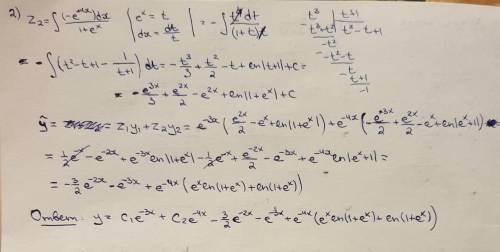 2) z₂ = ∫ (-e^{4x})dx / (1+e^x) | e^x = t, dx = dt/t | = - ∫ t⁴ dt / ((1+t)t)
t³ | t+1
- t³+t² | t²-t+1
- -t²-t
t
- t+1
-1
= - ∫ (t² - t + 1 - 1/(t+1)) dt = - t³/3 + t²/2 - t + ln|t+1| + C =
= - e^{3x}/3 + e^{2x}/2 - e^{2x} + ln|1+e^x| + C
ỹ = z₁y₁ + z₂y₂ = e^{-3x} (e^{2x}/2 - e^x + ln|1+e^x|) + e^{-4x} (- e^{3x}/3 + e^{2x}/2 - e^x + ln|e^x+1|) =
= 1/2 e^{-x} - e^{-2x} + e^{-3x} ln|1+e^x| - 1/3 e^{-x} + e^{-2x}/2 - e^{-3x} + e^{-4x} ln|e^x+1| =
= - 3/2 e^{-2x} - e^{-3x} + e^{-4x} (e^x ln(1+e^x) + ln(1+e^x))
Ответ: y = C₁e^{-3x} + C₂e^{-4x} - 3/2 e^{-2x} - e^{-3x} + e^{-4x} (e^x ln(1+e^x) + ln(1+e^x))